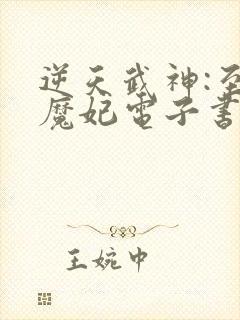 逆天武神:至
魔妃電子書
王婉中